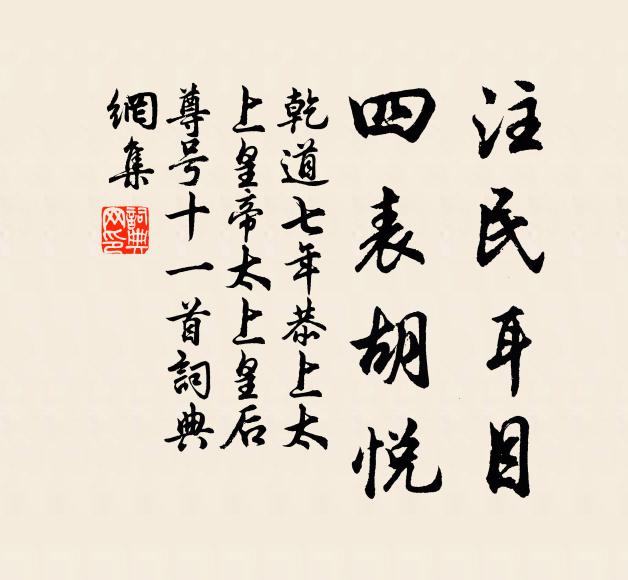 注民耳目
四表胡悦
乾道七年恭上太
上皇帝太上皇后
尊号十一首詞典
網集
詞典
网印